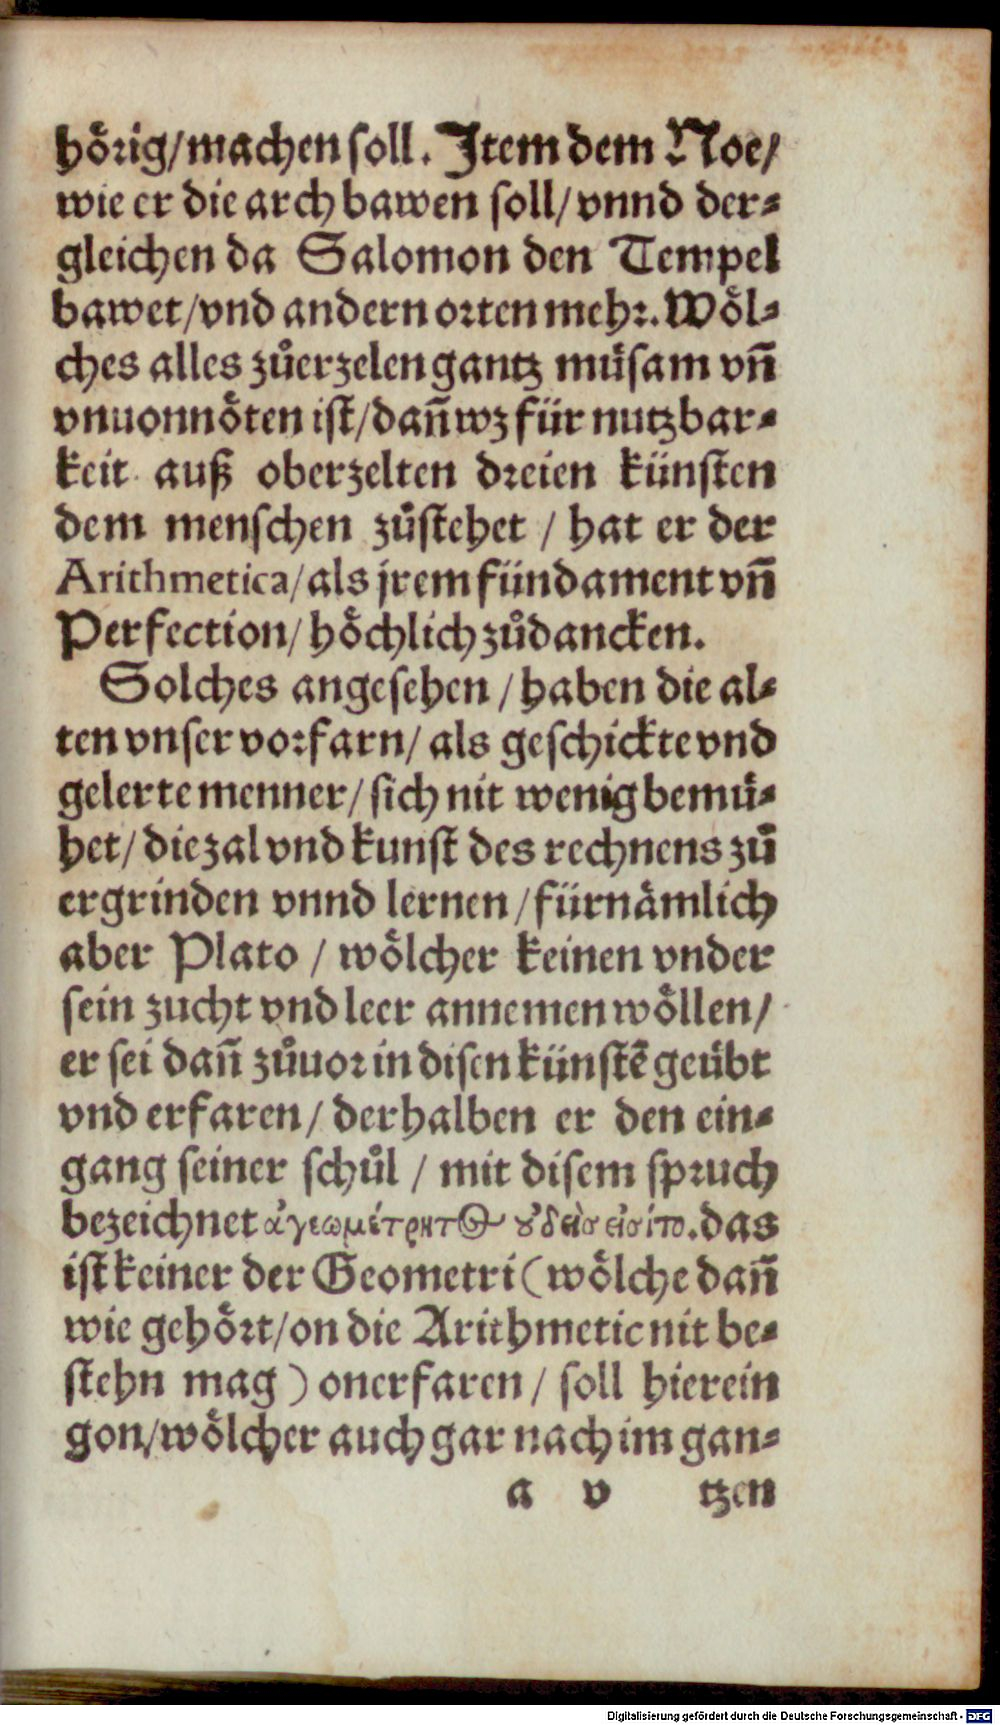 hörig/machen soll. Item dem Noe/
wie er die arch bawen soll/ vnnd der⸗
gleichen da Salomon den Tempel
bawet/vnd andern orten mehr. Wöl⸗
ches alles zůerzelen gantz müsam vñ
vnuonnöten ist/dañ wz für nutzbar⸗
keit auß oberzelten dreien künsten
dem menschen zůstehet / hat er der
Arithmetica/als jrem fündament vñ
Perfection/ höchlich zůdancken.
Solches angesehen / haben die al⸗
ten vnser vorfarn/ als geschickte vnd
gelerte menner/ sich nit wenig bemü⸗
het/ die zal vnd kunst des rechnens zů
ergrinden vnnd lernen / fürnämlich
aber Plato / wölcher keinen vnder
sein zucht vnd leer annemen wöllen/
er sei dañ zůuor in disen künstē geübt
vnd erfaren/ derhalben er den ein⸗
gang seiner schůl / mit disem spruch
bezeichnet ἀγεωμέτρητος ȣδεὶσ εἰσίτο. das
ist keiner der Geometri (wölche dañ
wie gehört/on die Arithmetic nit be⸗
stehn mag) onerfaren/ soll hierein
gon/wölcher auch gar nach im gan⸗
a v tzen
Digitalisierung gefördert durch die Deutsche Forschungsgemeinschaft - DFG